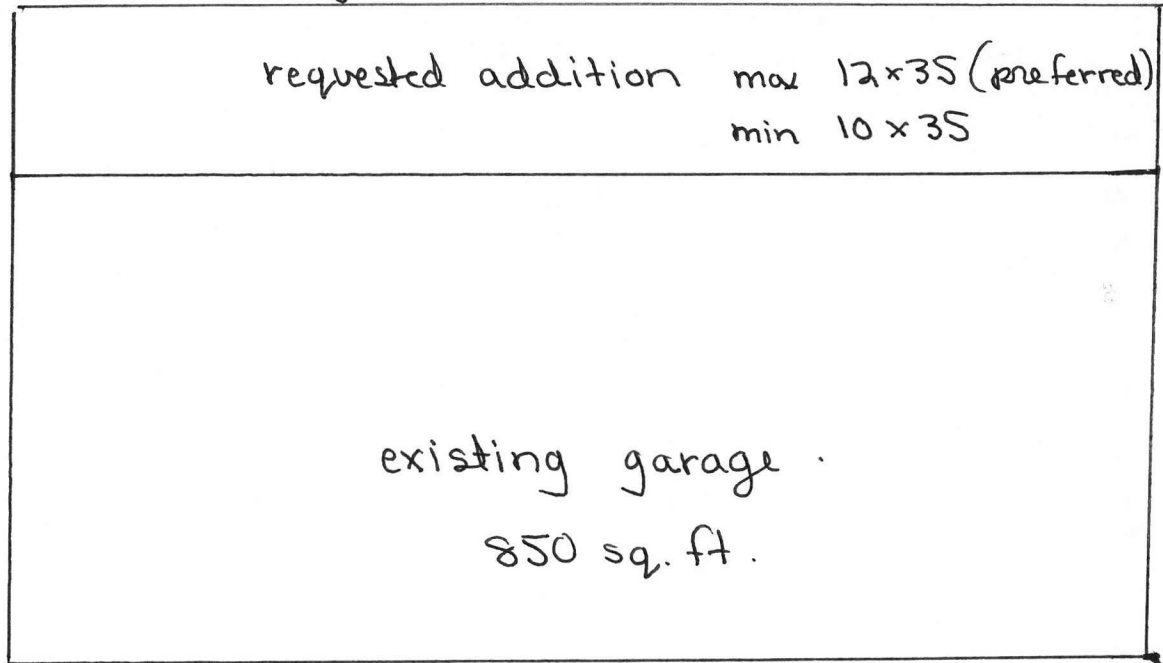 requested addition max 12x35 (preferred)
min 10 x 35
existing garage.
850 sq. ft.